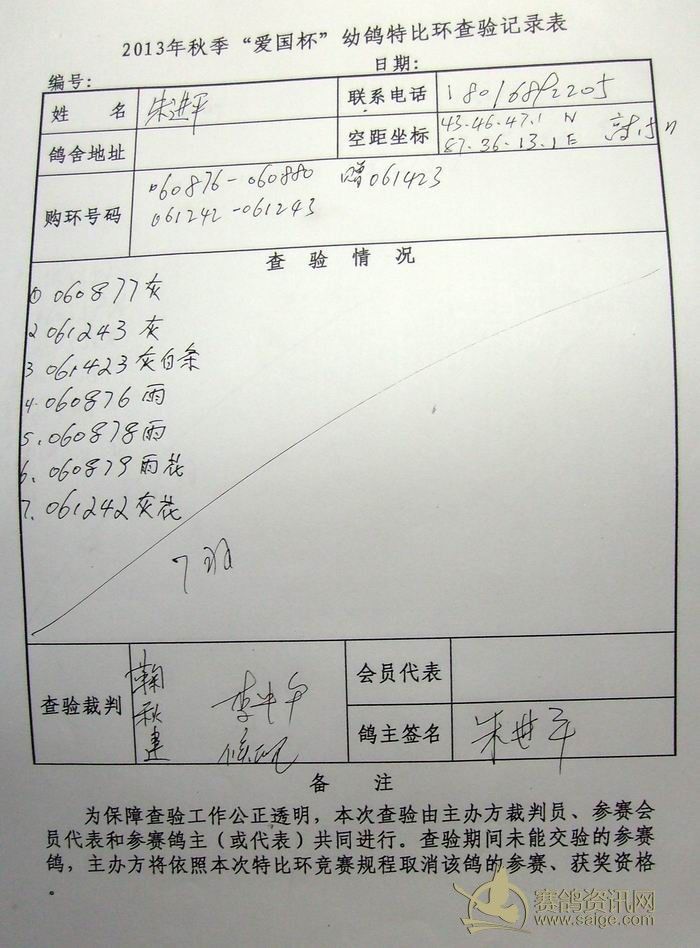 2013年秋季“爱国杯”幼鸽特比环查验记录表
编号： 日期：
姓 名 朱进平 联系电话 18016892205
鸽舍地址 空距坐标 43.46.47.1 N
87.36.13.1 E
购环号码 060876-060880 赠061423
061242-061243
查 验 情 况
① 060877灰
2 061243 灰
3 061423灰白条
4.060876 雨
5.060878雨
6.060879雨花
7.061242灰花
7羽
查验裁判 会员代表
鸽主签名 朱进平
备 注
为保障查验工作公正透明，本次查验由主办方裁判员、参赛会
员代表和参赛鸽主（或代表）共同进行。查验期间未能交验的参赛
鸽，主办方将依照本次特比环竞赛规程取消该鸽的参赛、获奖资格
。
赛鸽资讯网
www.saige.com